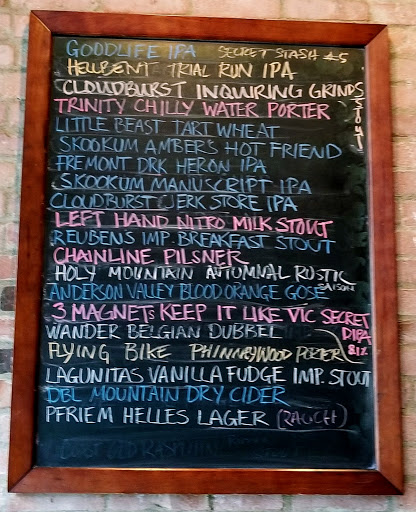 GOODLIFE IPA SECRET STASH #5
HELLBENT TRIAL RUN IPA
CLOUDBURST INQUIRING GRINDS STOUT
TRINITY CHILLY WATER PORTER
LITTLE BEAST TART WHEAT
SKOOKUM AMBERS HOT FRIEND
FREMONT DRK HERON IPA
SKOOKUM MANUSCRIPT IPA
CLOUDBURST JERK STORE IPA
LEFT HAND NITRO MILK STOUT
REUBENS IMP. BREAKFAST STOUT
CHAINLINE PILSNER
HOLY MOUNTAIN AUTUMNAL RUSTIC SAISON
ANDERSON VALLEY BLOOD ORANGE GOSE
3 MAGNETS KEEP IT LIKE VIC SECRET DIPA 8.1%
WANDER BELGIAN DUBBEL
FLYING BIKE PHINNEYWOOD PORTER
LAGUNITAS VANILLA FUDGE IMP. STOUT
DBL MOUNTAIN DRY CIDER
PFRIEM HELLES LAGER (RAUCH)